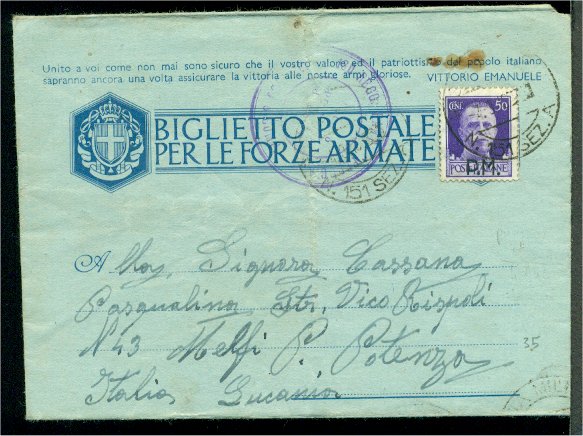 Unito a voi come non mai sono sicuro che il vostro valore ed il patriottismo del popolo italiano
sapranno ancora una volta assicurare la vittoria alle nostre armi gloriose. VITTORIO EMANUELE
CENT. 50
POSTE ITALIANE
P.M.
N. 151 SEZ. A
BIGLIETTO POSTALE
PER LE FORZE ARMATE
N. 151 SEZ. A
Alla, Signora Cassana
Pasqualina, Str, Vico Rispoli
N 43 Melfi P. Potenza
35
Italia Lucania